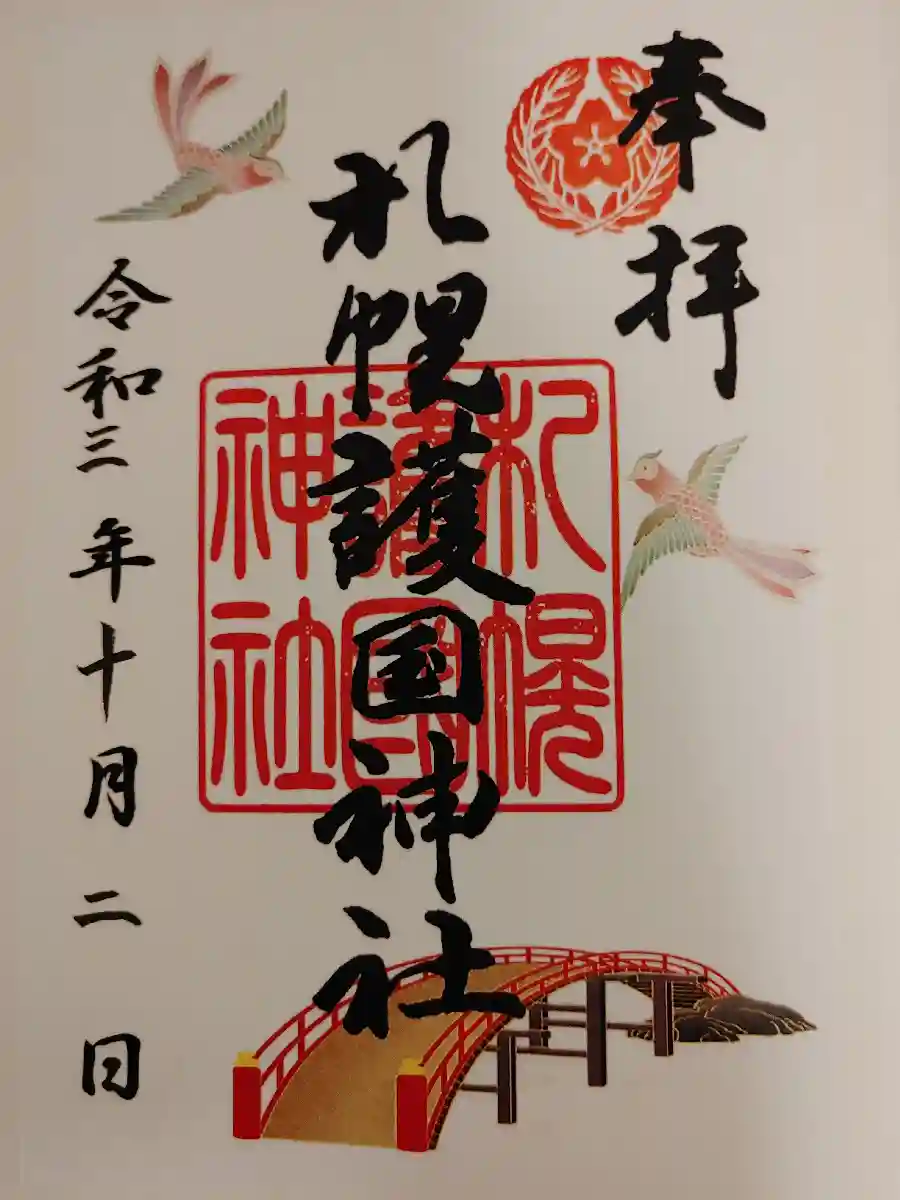 奉拝
札幌護国神社
札幌
護國
神社
令和三年十月二日